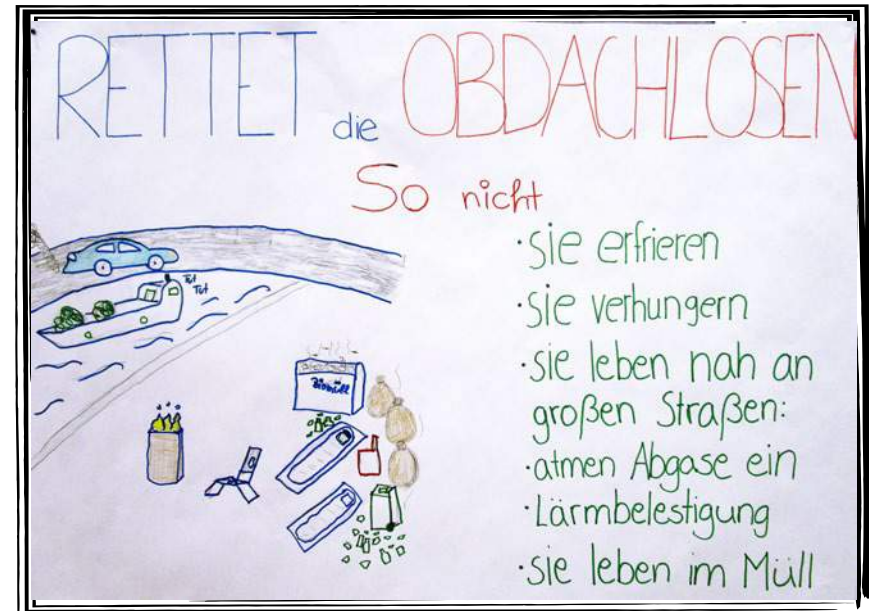 RETTET die OBDACHLOSEN
So nicht
Tut
Tut
Biomüll
· sie erfrieren
· sie verhungern
· sie leben nah an
großen Straßen:
· atmen Abgase ein
· Lärmbelestigung
· sie leben im Müll